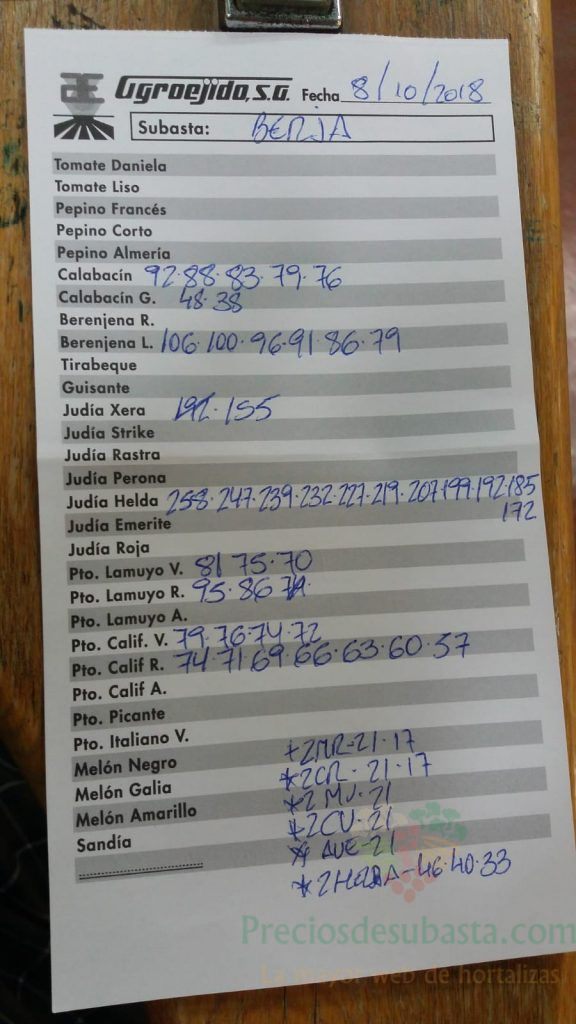 Agroejido, S.A. Fecha 8/10/2018
Subasta: BERJA
Tomate Daniela
Tomate Liso
Pepino Francés
Pepino Corto
Pepino Almería
Calabacín 92·88·83·79·76
Calabacín G. 48·38
Berenjena R.
Berenjena L. 106·100·96·91·86·79
Tirabeque
Guisante
Judía Xera 192·155
Judía Strike
Judía Rastra
Judía Perona
Judía Helda 258·247·239·232·227·219·207·199·192·185
172
Judía Emerite
Judía Roja
Pto. Lamuyo V. 81 75·70
Pto. Lamuyo R. 95·86
Pto. Lamuyo A.
Pto. Calif. V. 79·76·74·72
Pto. Calif R. 74·71·69·66·63·60·57
Pto. Calif A.
Pto. Picante
Pto. Italiano V.
Melón Negro *2MR-21·17
Melón Galia *2CR-21·17
Melón Amarillo *2MV-21
Sandía *2CV-21
* AVE-21
*2HELDA-46·40·33
Preciosdesubasta.com
La mayor web de hortalizas